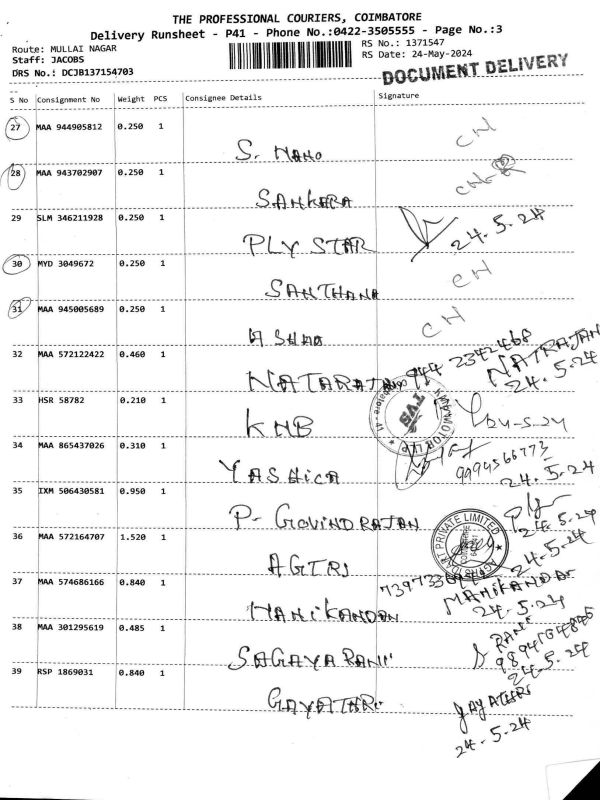 THE PROFESSIONAL COURIERS, COIMBATORE
Delivery Runsheet - P41 - Phone No.:0422-3505555 - Page No.:3
Route: MULLAI NAGAR
Staff: JACOBS
DRS No.: DCJB137154703
RS No.: 1371547
RS Date: 24-May-2024
DOCUMENT DELIVERY
S No Consignment No Weight PCS Consignee Details Signature
27 MAA 944905812 0.250 1 CH
S. MANO
28 MAA 943702907 0.250 1
SANKARA
29 SLM 346211928 0.250 1
PLY STAR 24.5.24
30 MYD 3049672 0.250 1 CH
SANTHANA
31 MAA 945005689 0.250 1 CH
32 MAA 572122422 0.460 1 944 2342468 NATRAJAN
NATARAJAN 24.5.24
33 HSR 58782 0.210 1 TVS
KNB 24-5-24
34 MAA 865437026 0.310 1 9994566773
YASHICA 24.5.24
35 IXM 506430581 0.950 1
P- GOVINDRAJAN 24.5.24
36 MAA 572164707 1.520 1 PRIVATE LIMITED
AGTRI 24.5.24
37 MAA 574686166 0.840 1 MANIKANDAN
MANIKANDAN 24.5.24
38 MAA 301295619 0.485 1 RANI
SAGAYARANI 24.5.24
39 RSP 1869031 0.840 1 GAYATHRI
GAYATHRI 24.5.24